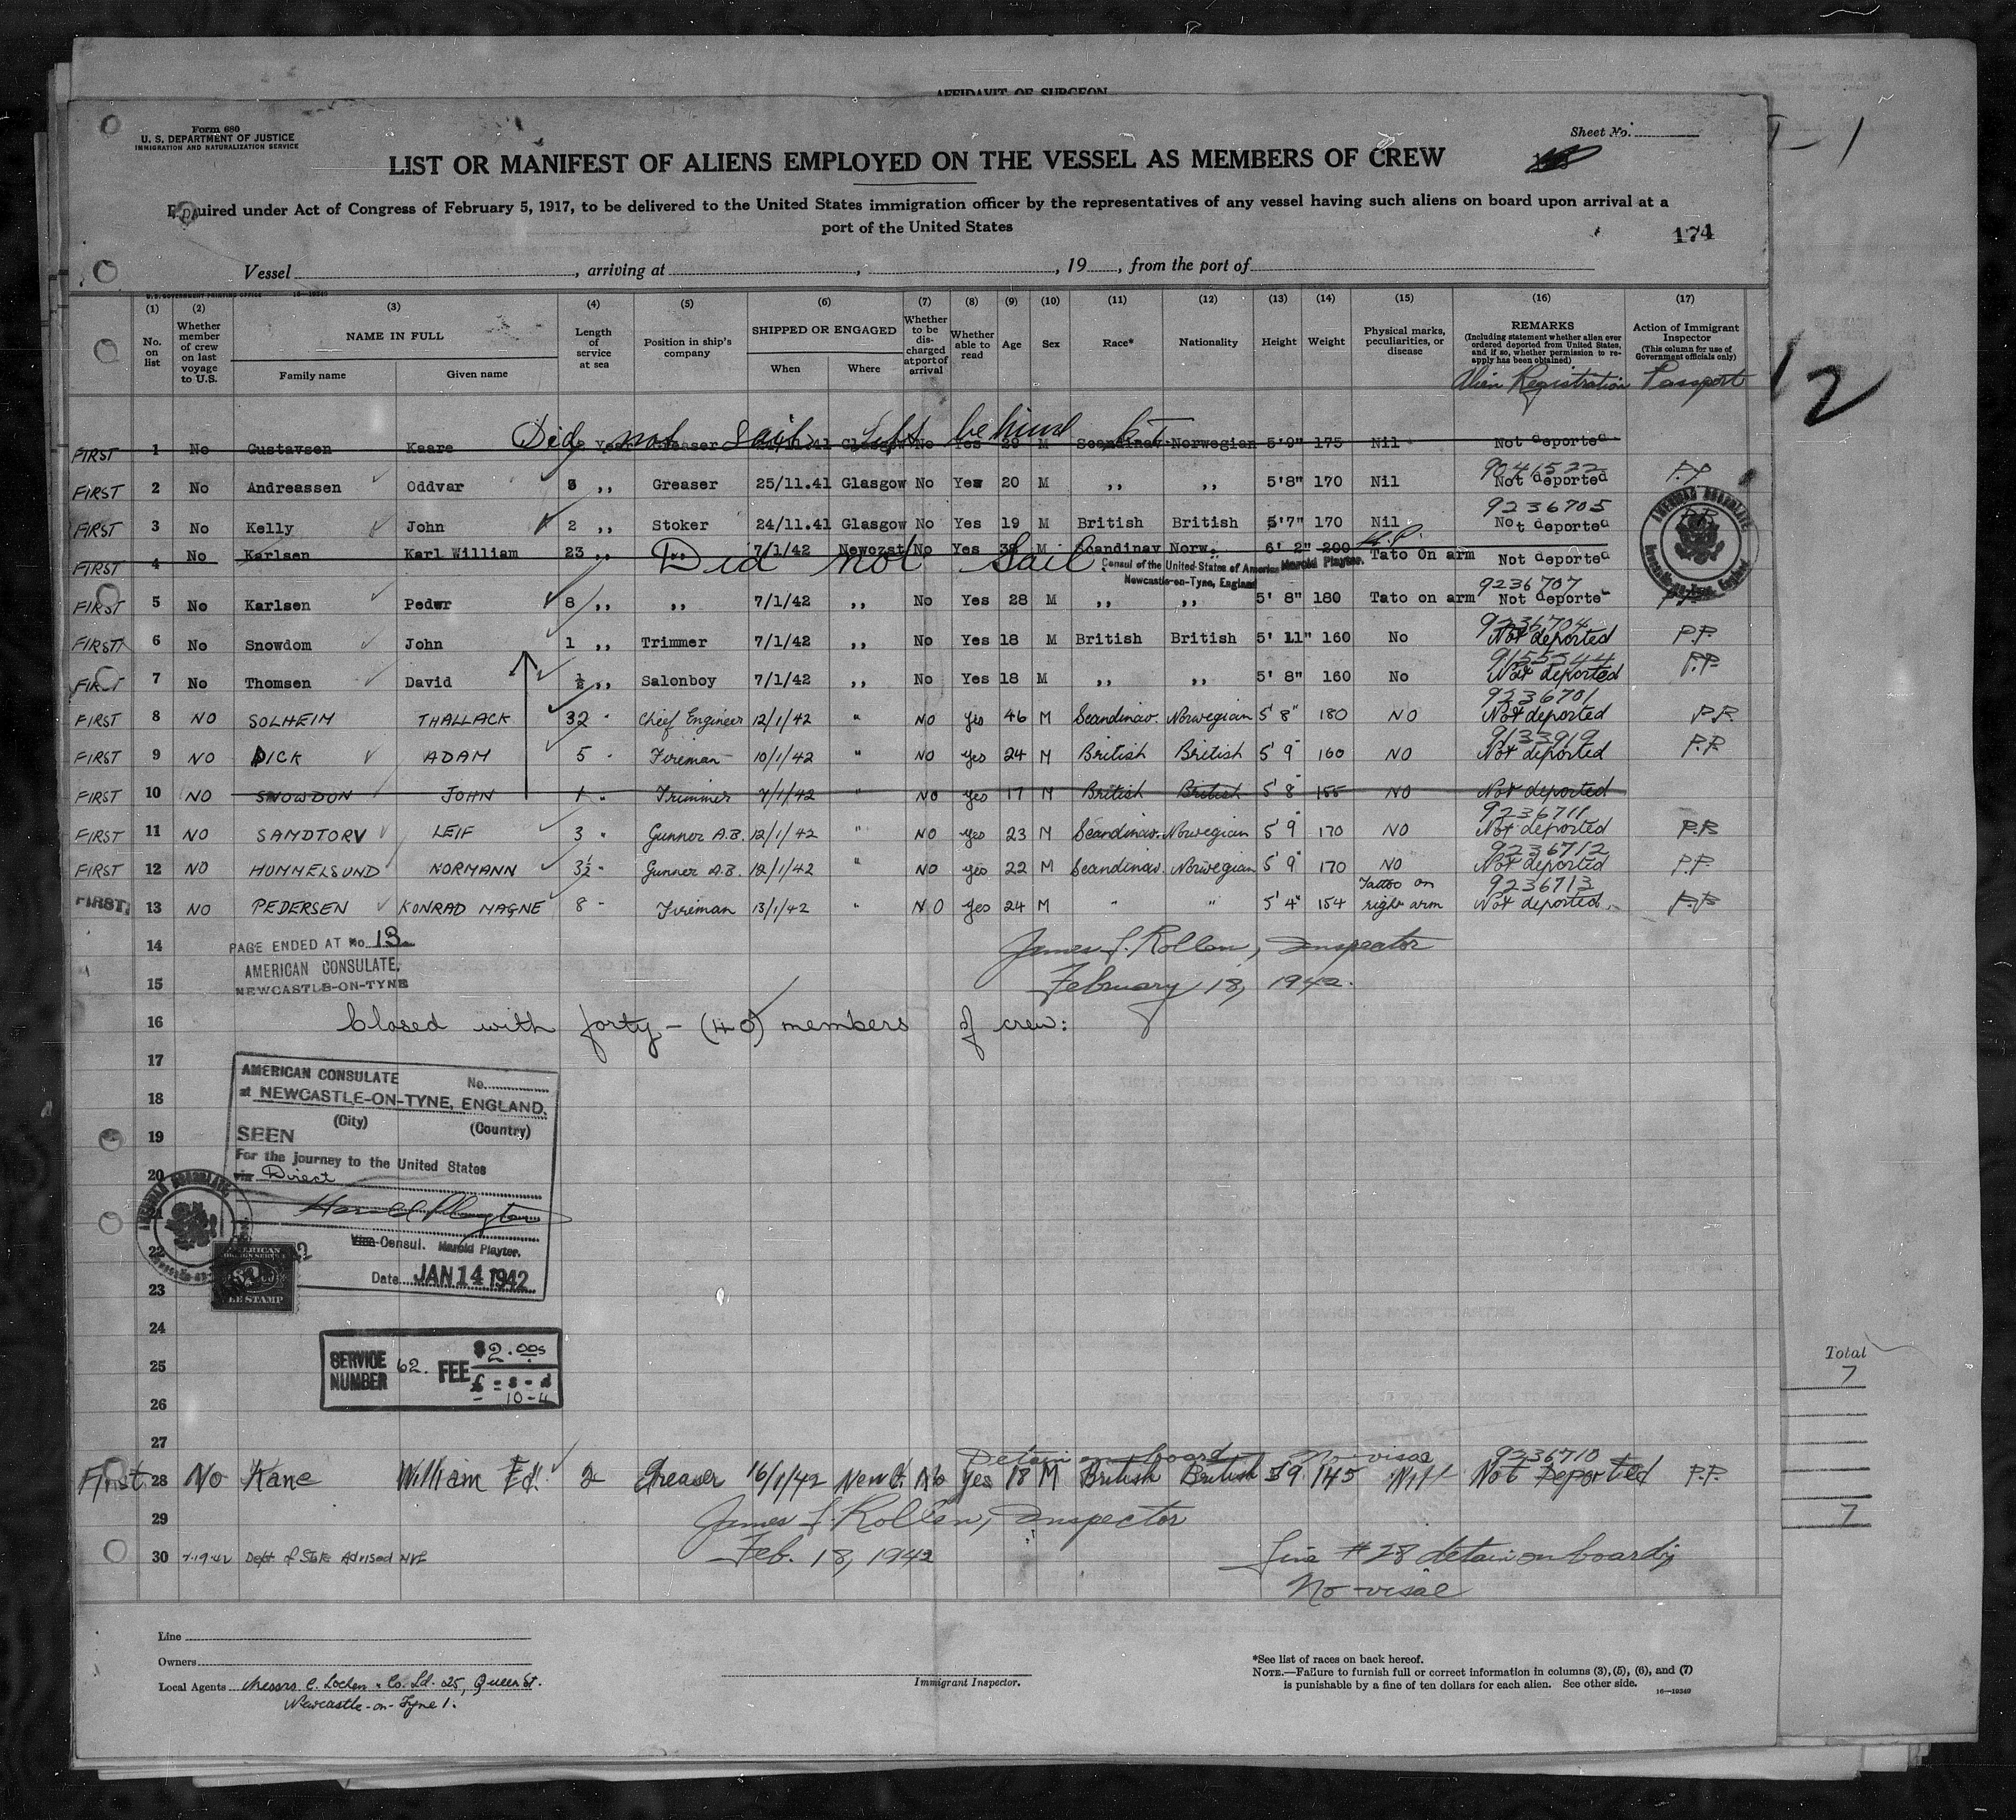 AFFIDAVIT OF SURGEON
Form 680
U. S. DEPARTMENT OF JUSTICE
IMMIGRATION AND NATURALIZATION SERVICE
Sheet No.
LIST OR MANIFEST OF ALIENS EMPLOYED ON THE VESSEL AS MEMBERS OF CREW
Required under Act of Congress of February 5, 1917, to be delivered to the United States immigration officer by the representatives of any vessel having such aliens on board upon arrival at a
port of the United States
174
Vessel , arriving at , , 19 , from the port of
U. S. GOVERNMENT PRINTING OFFICE 16—19349
(1) (2) (3) (4) (5) (6) (7) (8) (9) (10) (11) (12) (13) (14) (15) (16) (17)
No. on list
Whether member of crew on last voyage to U.S.
NAME IN FULL
Family name Given name
Length of service at sea
Position in ship's company
SHIPPED OR ENGAGED
When Where
Whether to be discharged at port of arrival
Whether able to read
Age
Sex
Race*
Nationality
Height
Weight
Physical marks, peculiarities, or disease
REMARKS
(Including statement whether alien ever ordered deported from United States, and if so, whether permission to reapply has been obtained)
Action of Immigrant Inspector
(This column for use of Government officials only)
Alien Registration Passport
12
Did not sail left behind
FIRST 1 No Gustavsen Kaare Greaser 41 Glasgow No Yes 29 M Scandinav Norwegian 5'9" 175 Nil Not deported
9046522
FIRST 2 No Andreassen Oddvar ,, Greaser 25/11.41 Glasgow No Yes 20 M ,, ,, 5'8" 170 Nil Not deported P.P.
9236705
FIRST 3 No Kelly John 2 ,, Stoker 24/11.41 Glasgow No Yes 19 M British British 5'7" 170 Nil Not deported
FIRST 4 No Karlsen Karl William 23 ,, ,, 7/1/42 Newcast No Yes 38 M Scandinav Norw. 6' 2" 200 Tato On arm Not deported
Did not Sail
Consul of the United States of America Harold Playter.
Newcastle-on-Tyne, England
AMERICAN CONSULATE
9236707
FIRST 5 No Karlsen Pedwr 8 ,, ,, 7/1/42 ,, No Yes 28 M ,, ,, 5' 8" 180 Tato on arm Not deported
9236704
FIRST 6 No Snowdom John 1 ,, Trimmer 7/1/42 ,, No Yes 18 M British British 5' 11" 160 No Not deported P.P.
9155344
FIRST 7 No Thomsen David ½ ,, Salonboy 7/1/42 ,, No Yes 18 M ,, ,, 5' 8" 160 No Not deported P.P.
9236701
FIRST 8 NO SOLHEIM THALLACK 32 " Chief Engineer 12/1/42 " NO yes 46 M Scandinav. Norwegian 5' 8" 180 NO Not deported P.P.
9133919
FIRST 9 NO DICK ADAM 5 " Fireman 10/1/42 " NO yes 24 M British British 5' 9" 160 NO Not deported P.P.
FIRST 10 NO SNOWDON JOHN 1 " Trimmer 7/1/42 " NO yes 17 M British British 5' 8" 155 NO Not deported
9236711
FIRST 11 NO SAMDTORV LEIF 3 " Gunner A.B. 12/1/42 " NO yes 23 M Scandinav. Norwegian 5' 9" 170 NO Not deported P.P.
9236712
FIRST 12 NO HUMMELSUND NORMANN 3½ " Gunner A.B. 12/1/42 " NO yes 22 M Scandinav. Norwegian 5' 9" 170 NO Not deported P.P.
9236713
FIRST 13 NO PEDERSEN KONRAD MAGNE 8 " Fireman 13/1/42 " NO yes 24 M " " 5' 4" 154 Tattoo on right arm Not deported P.P.
14 PAGE ENDED AT No 13
James J. Rollen, Inspector
AMERICAN CONSULATE,
15 NEWCASTLE-ON-TYNE
February 18, 1942.
16 Closed with forty - (40) members of crew:
17
AMERICAN CONSULATE No.
18 at NEWCASTLE-ON-TYNE, ENGLAND.
(City) (Country)
19 SEEN
For the journey to the United States
20 via Direct
21 Harold Playter
22 Vice Consul. Harold Playter.
23 Date JAN 14 1942
AMERICAN CONSULATE
24
25 SERVICE NUMBER 62. FEE $2.00s
£ - s - d
- 10 - 4
26
27
Detain on board No visae
9236710
First 28 No Kane William Ed. 2 Greaser 16/1/42 Newc. No Yes 18 M British British 5 9 145 Nil Not Deported P.P.
29 James J. Rollen, Inspector
30 Dept of State Advised
Feb. 18, 1942
Line #28 detain on board
No visae
Total
7
7
Line
Owners
Local Agents Messrs C. Lochen & Co. Ld. 25, Queen St.
Newcastle-on-Tyne 1.
Immigrant Inspector.
*See list of races on back hereof.
NOTE.—Failure to furnish full or correct information in columns (3), (5), (6), and (7)
is punishable by a fine of ten dollars for each alien. See other side.
16—19349